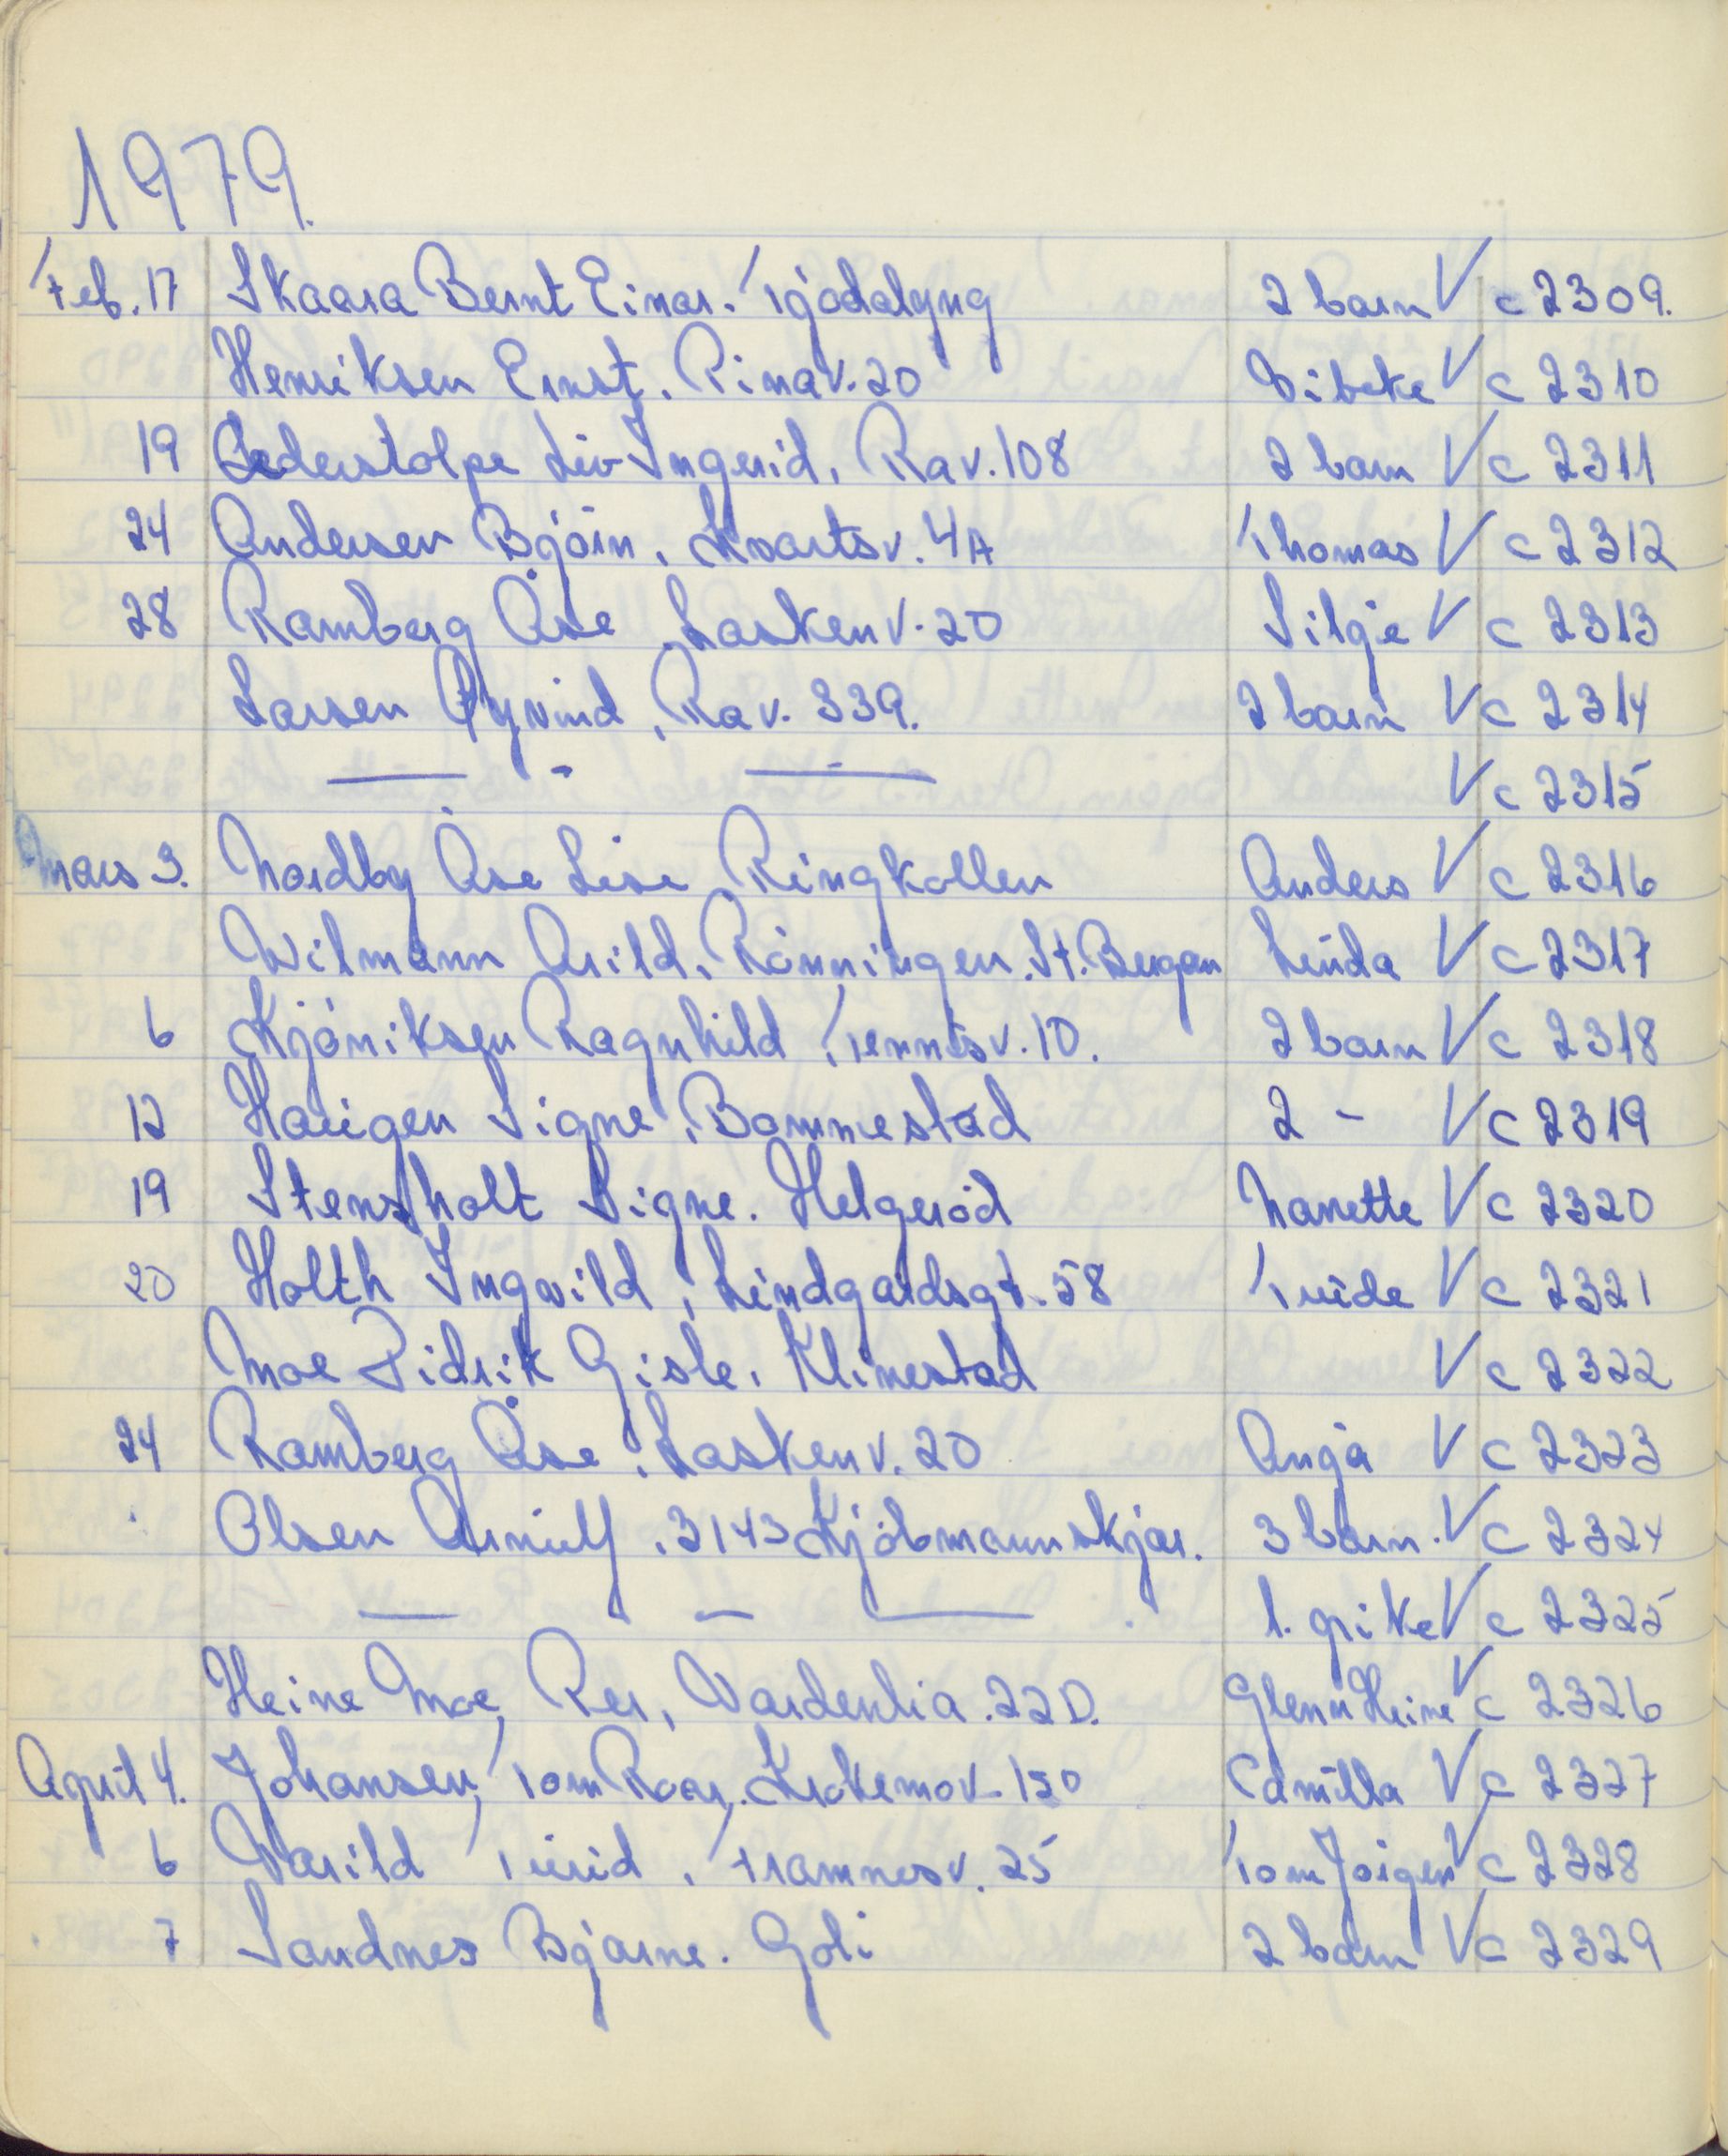 1979.
Feb. 17 Skaara Bernt Einar. Tjodalyng 2 barn V c 2309.
Henriksen Ernst. Rinav. 20 Vibeke V c 2310
19 Cederstolpe Liv Ingerid, Rav. 108 2 barn V c 2311
24 Andersen Bjørn, Kvartsv. 4A Thomas V c 2312
28 Ramberg Åse, Laskenv. 20 Silje V c 2313
Larsen Øyvind, Rav. 339. 2 barn V c 2314
— - — V c 2315
Mars 3. Nordby Åse Lise Ringkollen Anders V c 2316
Wilmann Arild, Rønningen. St. Bergan Linda V c 2317
6 Kjøniksen Ragnhild, Tennisv. 10. 2 barn V c 2318
12 Haugen Signe, Bommestad 2 - V c 2319
19 Stensholt Signe. Helgerød Nanette V c 2320
20 Holth Ingvild, Lindgaardsgt. 58 Trude V c 2321
Moe Didrik Gisle, Klinestad V c 2322
24 Ramberg Åse, Laskenv. 20 Anja V c 2323
Olsen Arnulf, 3143 Kjøbmannskjær. 3 barn. V c 2324
— - — 1. pike V c 2325
Heine Moe, Per, Vardenlia. 22D. Glenn Heine V c 2326
April 4. Johansen, Tom Roar. Krokemov. 150 Camilla V c 2327
6 Varild Turid, Framnesv. 25 Tom Jørgen V c 2328
7 Sandnes Bjarne. Goli 2 barn V c 2329